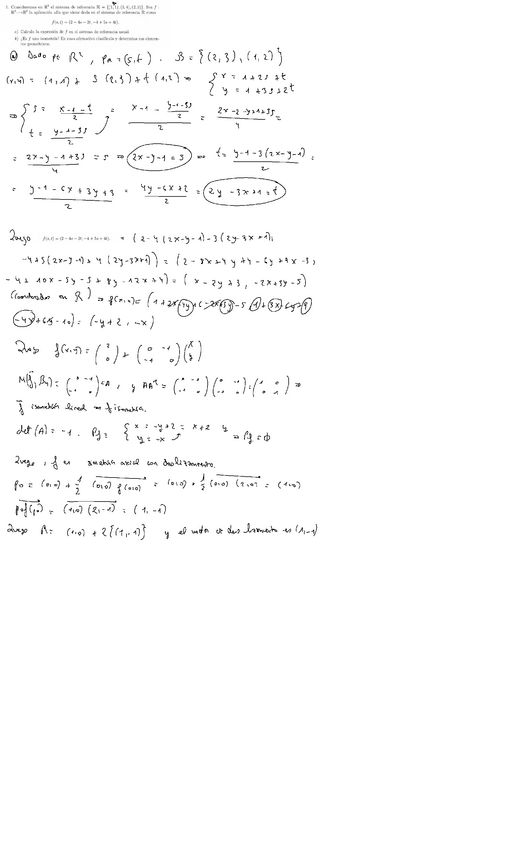 1. Consideremos en R² el sistema de referencia R = {(1,1); (2,3), (1,2)}. Sea f :
R² → R² la aplicación afín que viene dada en el sistema de referencia R como
f(s,t) = (2 − 4s − 3t, −4 + 5s + 4t).
a) Calcula la expresión de f en el sistema de referencia usual.
b) ¿Es f una isometría? En caso afirmativo clasifícala y determina sus elementos geométricos.
a) Dado P∈ R², P_R = (s,t). B = {(2,3), (1,2)}
(x,y) = (1,1) + s(2,3) + t(1,2) ⇒ { x = 1+2s+t
y = 1+3s+2t
⇒ { s = x-1-t / 2 = x-1 - y-1-3s/2 / 2 = 2x-2-y+1+3s / 4 =
t = y-1-3s / 2
= 2x-y-1+3s / 4 = s ⇒ 2x-y-1 = s ⇒ t = y-1-3(2x-y-1) / 2 =
= y-1-6x+3y+3 / 2 = 4y-6x+2 / 2 = 2y-3x+1 = t
Luego f(s,t) = (2 − 4s − 3t, −4 + 5s + 4t) = (2-4(2x-y-1)-3(2y-3x+1),
-4+5(2x-y-1)+4(2y-3x+1)) = (2-8x+4y+4-6y+9x-3,
-4+10x-5y-5+8y-12x+4) = (x-2y+3, -2x+3y-5)
(coordenadas en R) ⇒ f(x,y) =
= (-y+2, -x)
Luego f(x,y) = (2 0) + (0 -1 -1 0)(x y)
M(f, B) = (0 -1 -1 0) = A, y AAᵗ = (0 -1 -1 0)(0 -1 -1 0) = (1 0 0 1) ⇒
f isometría lineal ⇒ f isometría.
det(A) = -1. Pf = { x = -y+2 = x+2
y = -x ⇒ Pf = ∅
Luego, f es simetría axial con deslizamiento.
p0 = (0,0) + 1/2 (0,0) f(0,0) = (0,0) + 1/2 (0,0)(2,0) = (1,0)
p0f(p0) = (1,0)(2,-1) = (1,-1)
Luego R = (1,0) + L{(1,-1)} y el vector de deslizamiento es (1,-1)